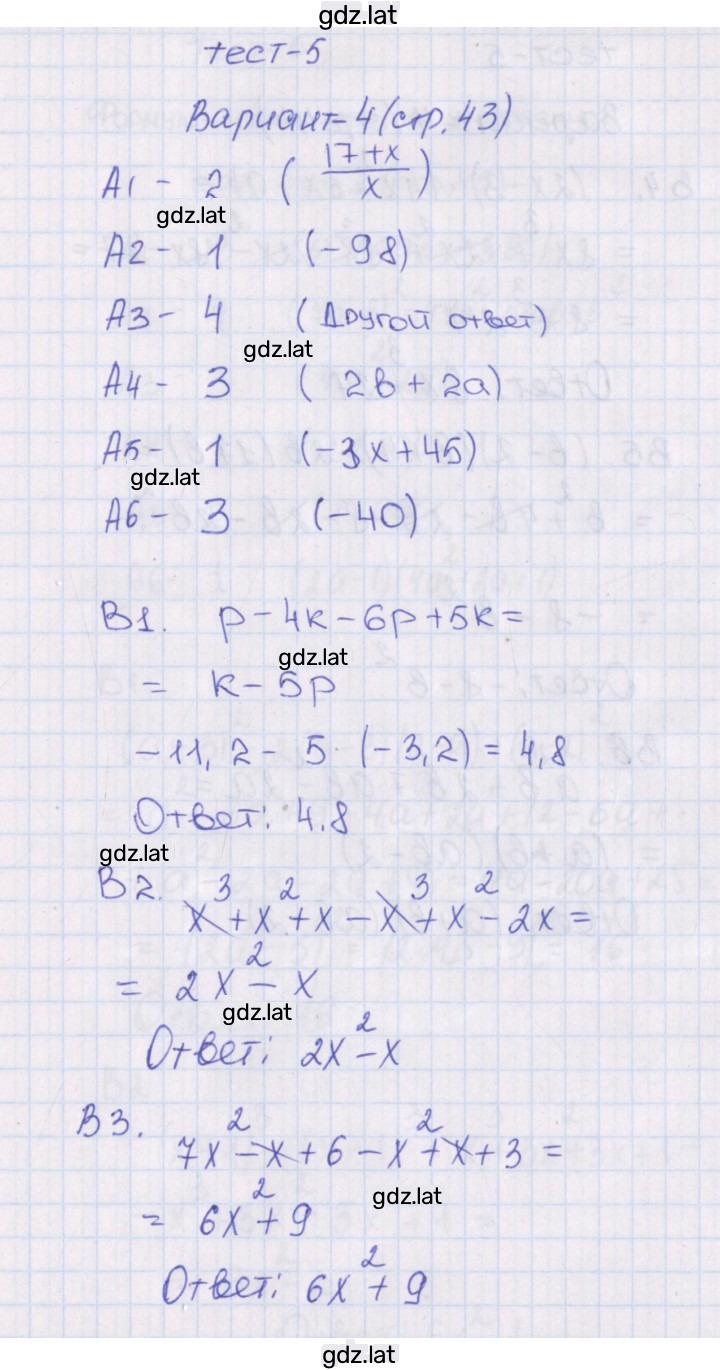 gdz.lat
тест-5
Вариант-4 (стр. 43)
А1 - 2 ( (17+x)/x )
gdz.lat
А2 - 1 (-98)
А3 - 4 (Другой ответ)
gdz.lat
А4 - 3 (2b + 2a)
А5 - 1 (-3x + 45)
gdz.lat
А6 - 3 (-40)
В1. p - 4k - 6p + 5k =
gdz.lat
= k - 5p
-11,2 - 5 · (-3,2) = 4,8
Ответ: 4.8
gdz.lat
В2. x³ + x² + x - x³ + x² - 2x =
= 2x² - x
gdz.lat
Ответ: 2x² - x
В3. 7x² - x + 6 - x² + x + 3 =
gdz.lat
= 6x² + 9
Ответ: 6x² + 9
gdz.lat